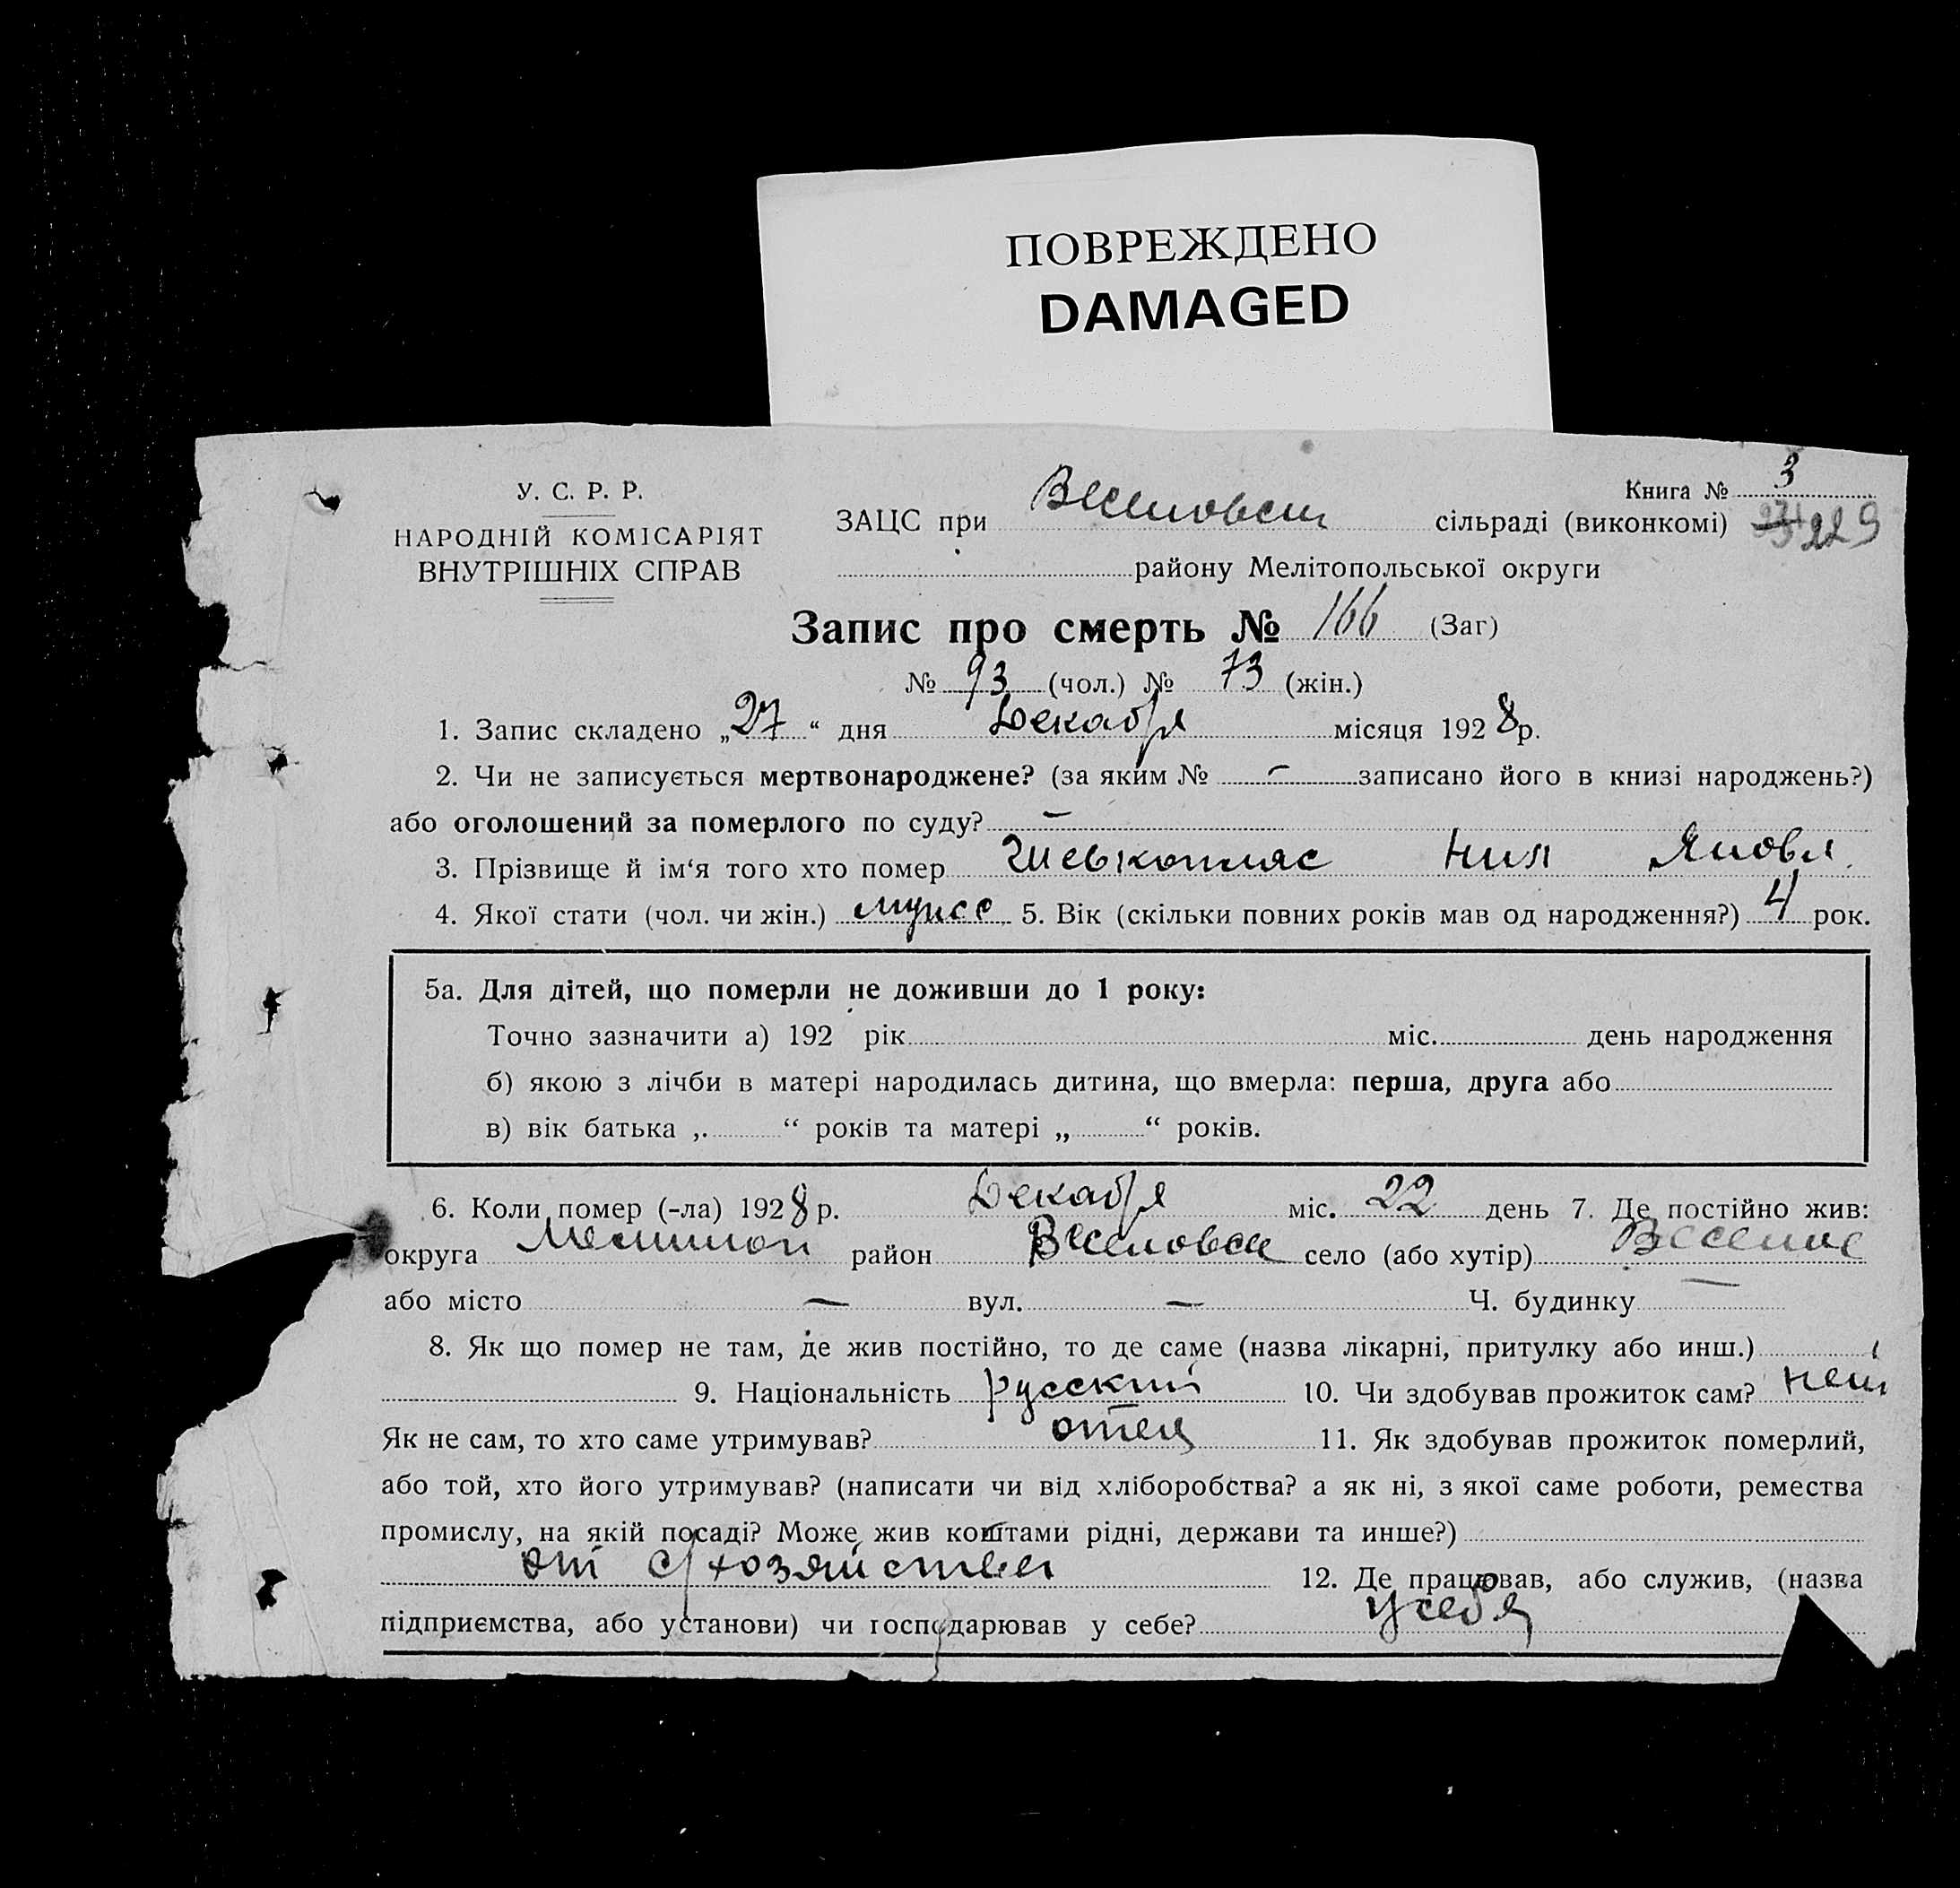 ПОВРЕЖДЕНО
DAMAGED
У. С. Р. Р.
НАРОДНІЙ КОМІСАРІЯТ
ВНУТРІШНІХ СПРАВ
Книга № 3
ЗАЦС при Веселовск сільраді (виконкомі) 229
району Мелітопольської округи
Запис про смерть № 166 (Заг)
№ 93 (чол.) № 73 (жін.)
1. Запис складено „27“ дня Декабря місяця 1928 р.
2. Чи не записується мертвонароджене? (за яким № – записано його в книзі народжень?)
або оголошений за померлого по суду? –
3. Прізвище й ім‘я того хто помер Нил Яковл.
4. Якої стати (чол. чи жін.) мужс 5. Вік (скільки повних років мав од народження?) 4 рок.
5а. Для дітей, що померли не доживши до 1 року:
Точно зазначити а) 192 рік міс. день народження
б) якою з лічби в матері народилась дитина, що вмерла: перша, друга або
в) вік батька „ “ років та матері „ “ років.
6. Коли помер (-ла) 1928 р. Декабря міс. 22 день 7. Де постійно жив:
округа Мелитоп район Веселовск село (або хутір) Веселое
або місто — вул. — Ч. будинку —
8. Як що помер не там, де жив постійно, то де саме (назва лікарні, притулку або инш.)
9. Національність русский 10. Чи здобував прожиток сам? нет
Як не сам, то хто саме утримував? отец 11. Як здобував прожиток померлий,
або той, хто його утримував? (написати чи від хліборобства? а як ні, з якої саме роботи, ремества
промислу, на якій посаді? Може жив коштами рідні, держави та инше?)
от с/хозяйства 12. Де працював, або служив, (назва
підприємства, або установи) чи господарював у себе? у себя